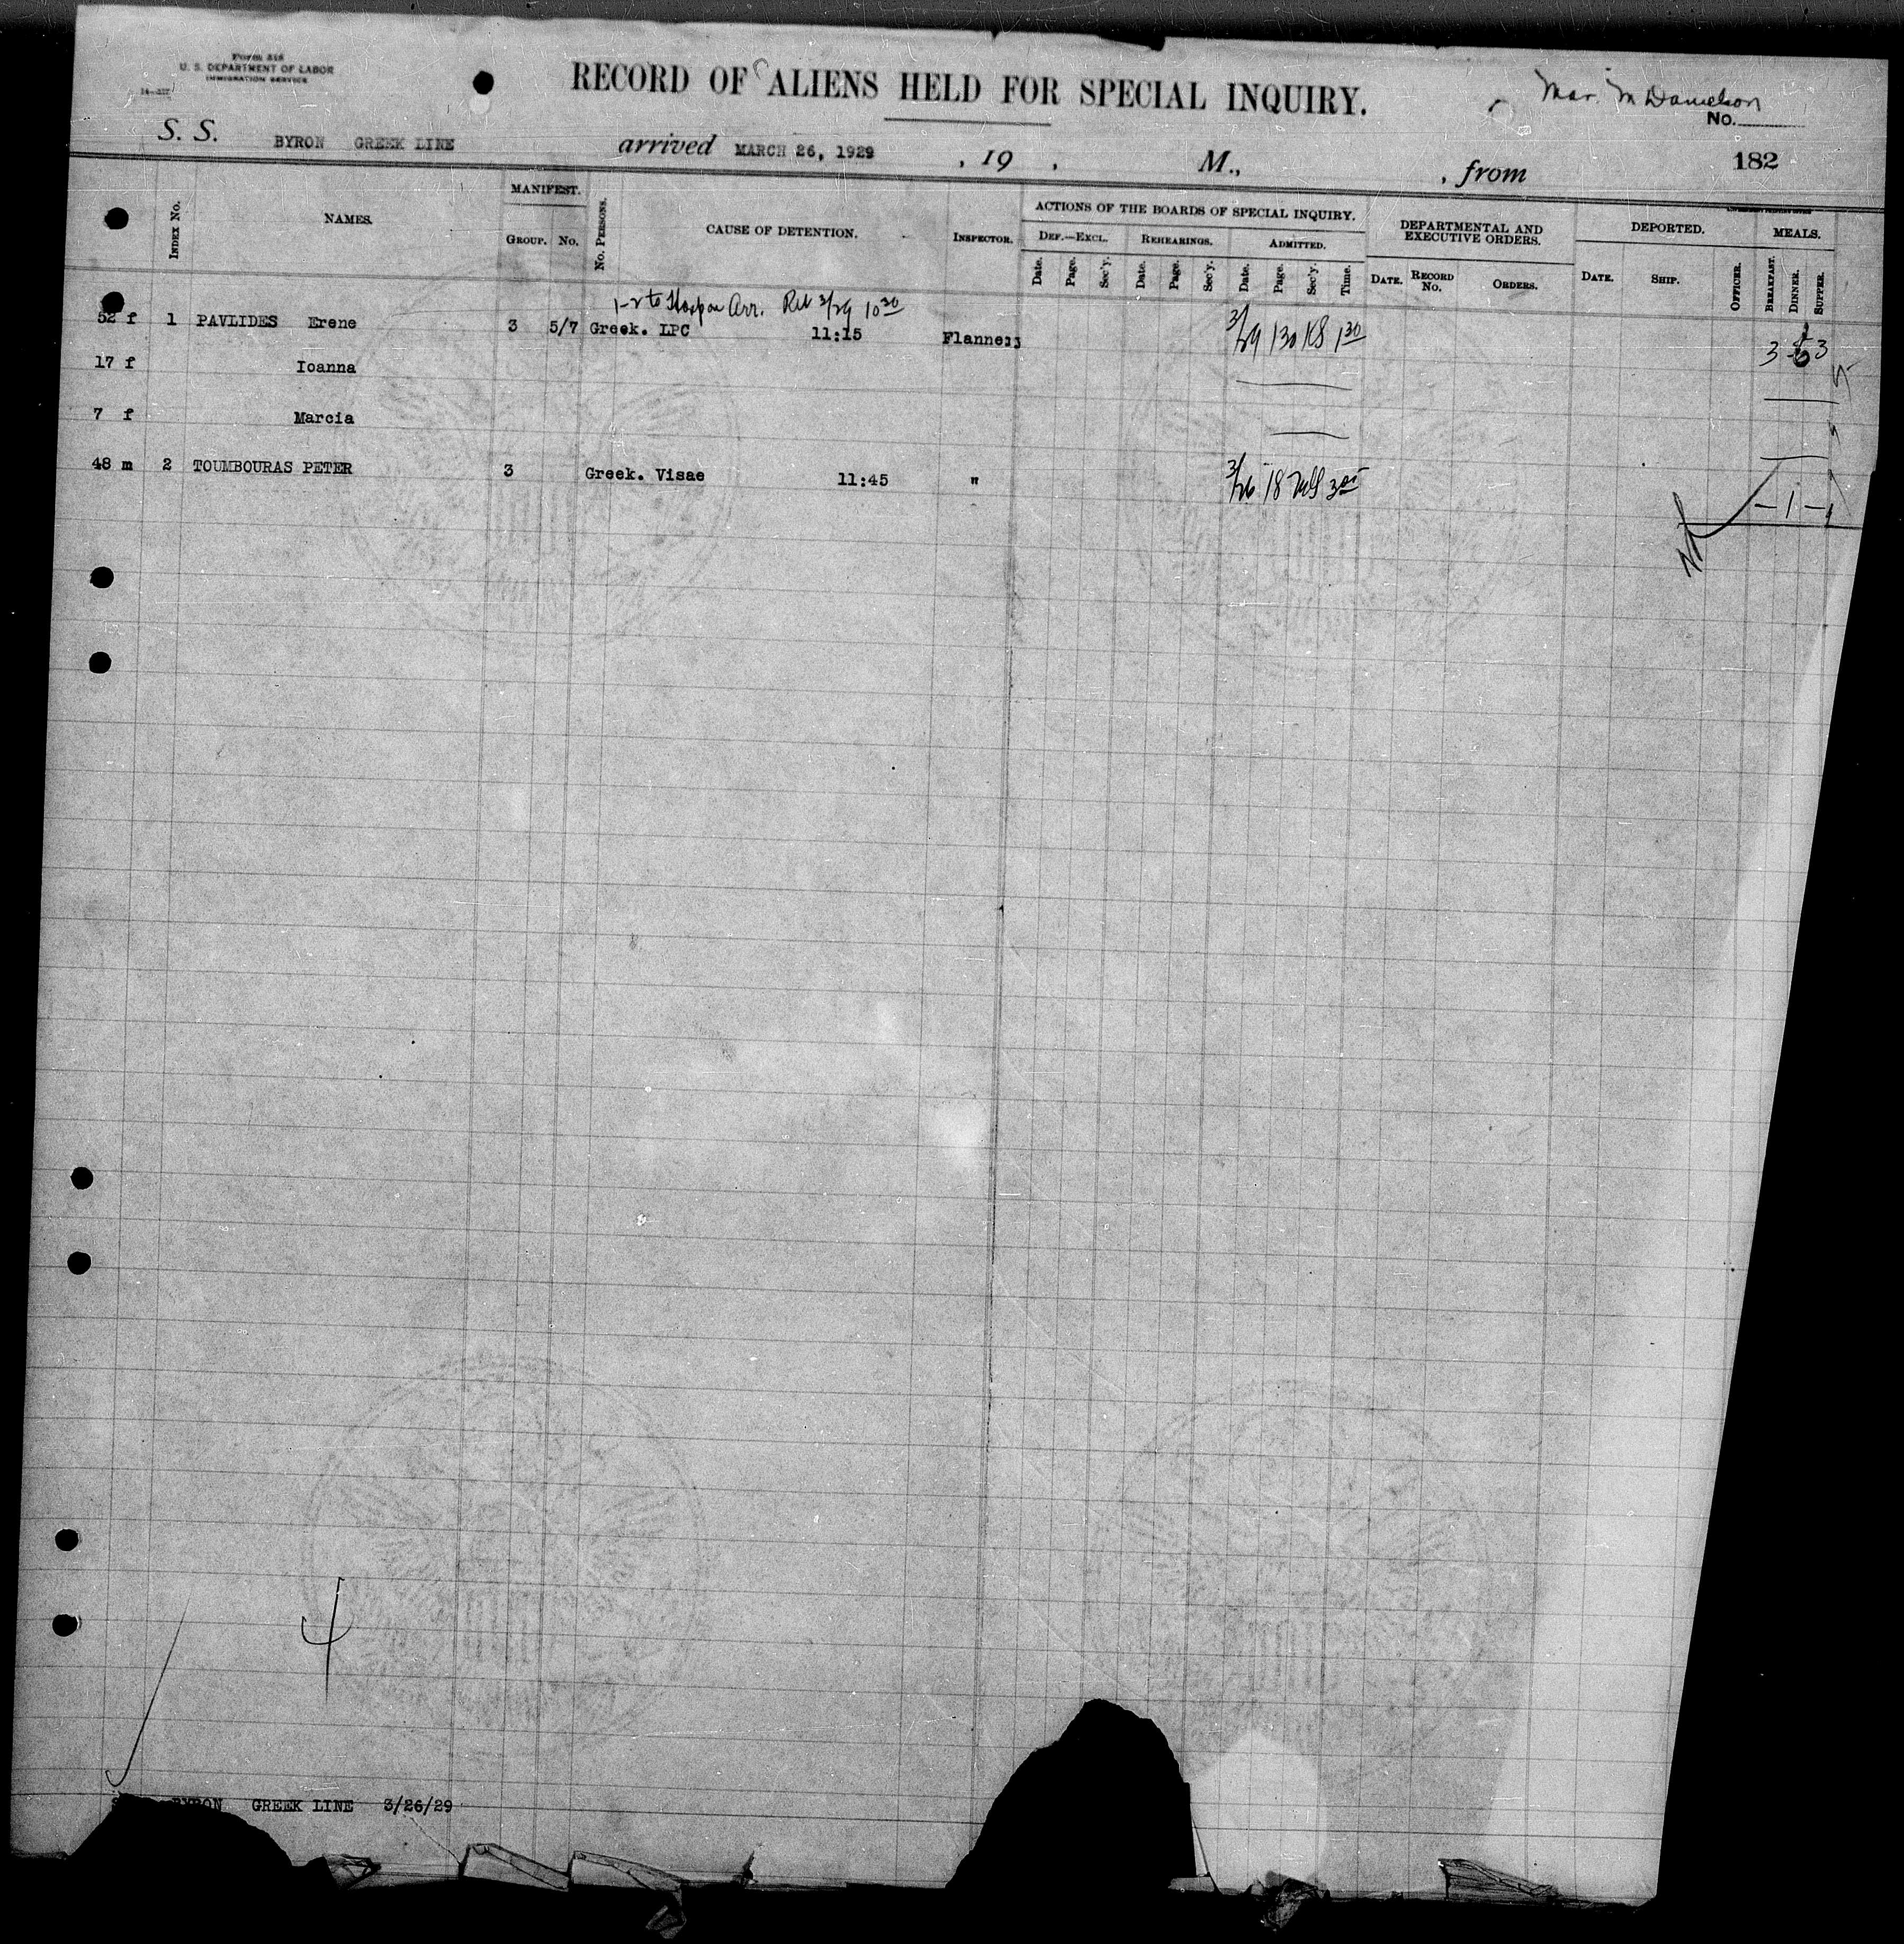 Form 518
U. S. DEPARTMENT OF LABOR
IMMIGRATION SERVICE
RECORD OF ALIENS HELD FOR SPECIAL INQUIRY.
No.
S. S. BYRON GREEK LINE arrived MARCH 26, 1929 , 19 , M., , from 182
INDEX No. NAMES. MANIFEST. GROUP. No. No. PERSONS. CAUSE OF DETENTION. INSPECTOR. ACTIONS OF THE BOARDS OF SPECIAL INQUIRY. DEPARTMENTAL AND EXECUTIVE ORDERS. DEPORTED. MEALS.
DEF.—EXCL. REHEARINGS. ADMITTED.
Date. Page. Sec'y. Date. Page. Sec'y. Date. Page. Sec'y. Time. DATE. RECORD No. ORDERS. DATE. SHIP. OFFICER. BREAKFAST. DINNER. SUPPER.
1-2 to Hosp on Arr. Rel 3/29 10 30
52 f 1 PAVLIDES Erene 3 5/7 Greek. LPC 11:15 3/29 130 KS 1 30 3
17 f Ioanna
7 f Marcia
48 m 2 TOUMBOURAS PETER 3 Greek. Visae 11:45 " 3/26 18 - 1 -
4
BYRON GREEK LINE 3/26/29